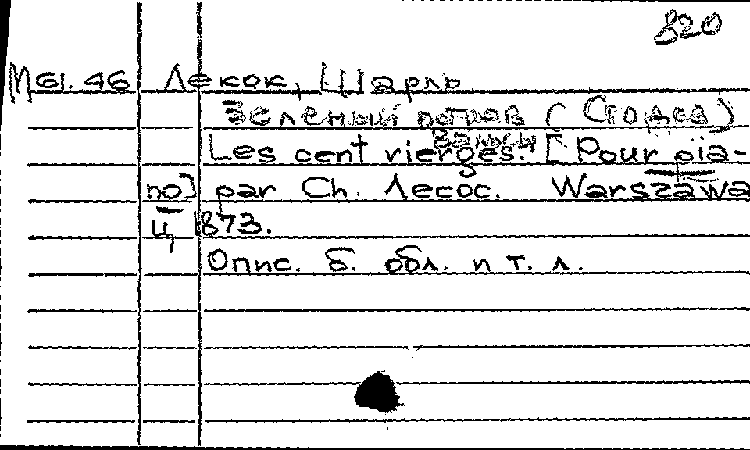 820
М61.46 Лекок, Шарль
Зеленый остров (Стодев)
Вальсы
Les cent vierges. [Pour pia-
no] par Ch. Лecoc. Warszawa
ц 1873.
Опис. б. обл. и т. л.